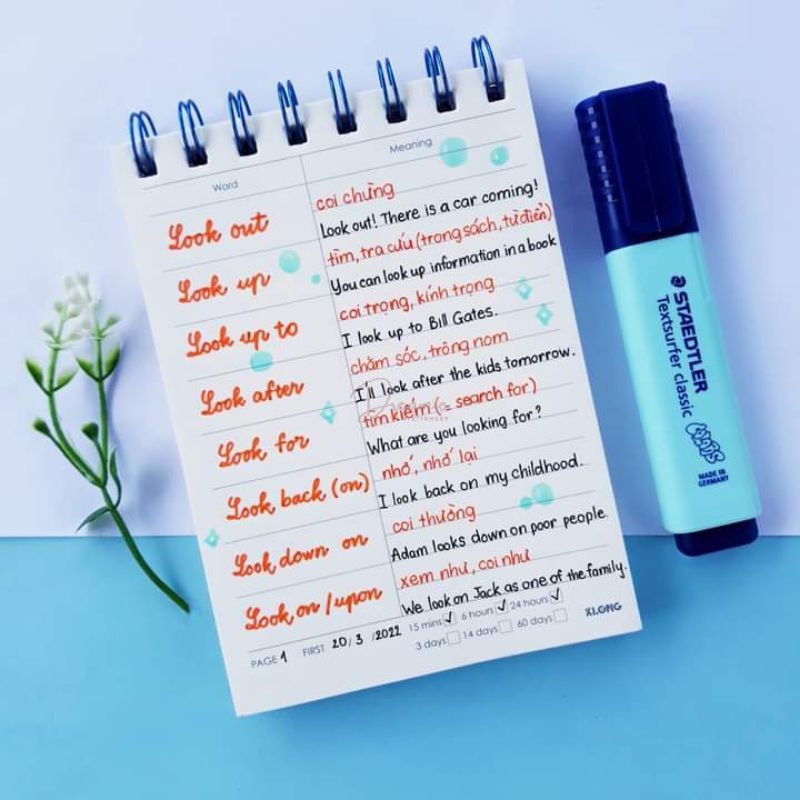 Word
Meaning
Look out
coi chừng
Look out! There is a car coming!
Look up
tìm, tra cứu (trong sách, từ điển)
You can look up information in a book
Look up to
coi trọng, kính trọng
I look up to Bill Gates.
Look after
chăm sóc, trông nom
I'll look after the kids tomorrow.
Look for
tìm kiếm (= search for)
What are you looking for?
Look back (on)
nhớ, nhớ lại
I look back on my childhood.
Look down on
coi thường
Adam looks down on poor people.
Look on / upon
xem như, coi như
We look on Jack as one of the family.
PAGE 1 FIRST 20/3/2022 15 mins 6 hours 24 hours
3 days 14 days 60 days
KLONG
STAEDTLER
Textsurfer classic
MADE IN
GERMANY